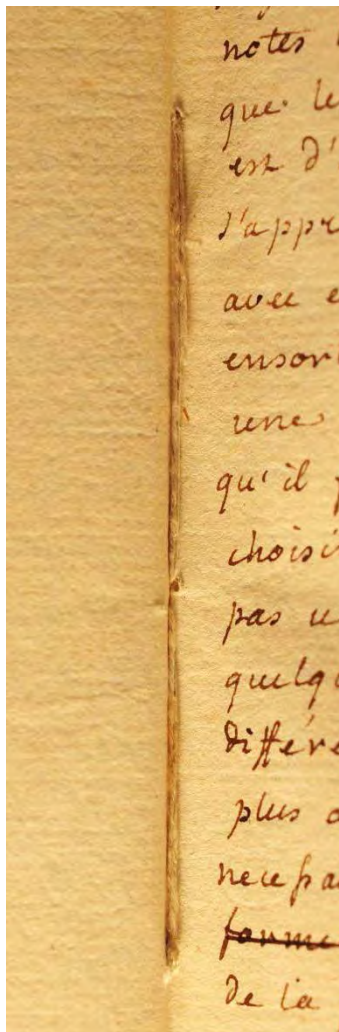 notes
que le
est d'
s'appr
avec e
ensor
une
qu'il
choisi
pas u
quelqu
différe
plus
necessa
forme
de la